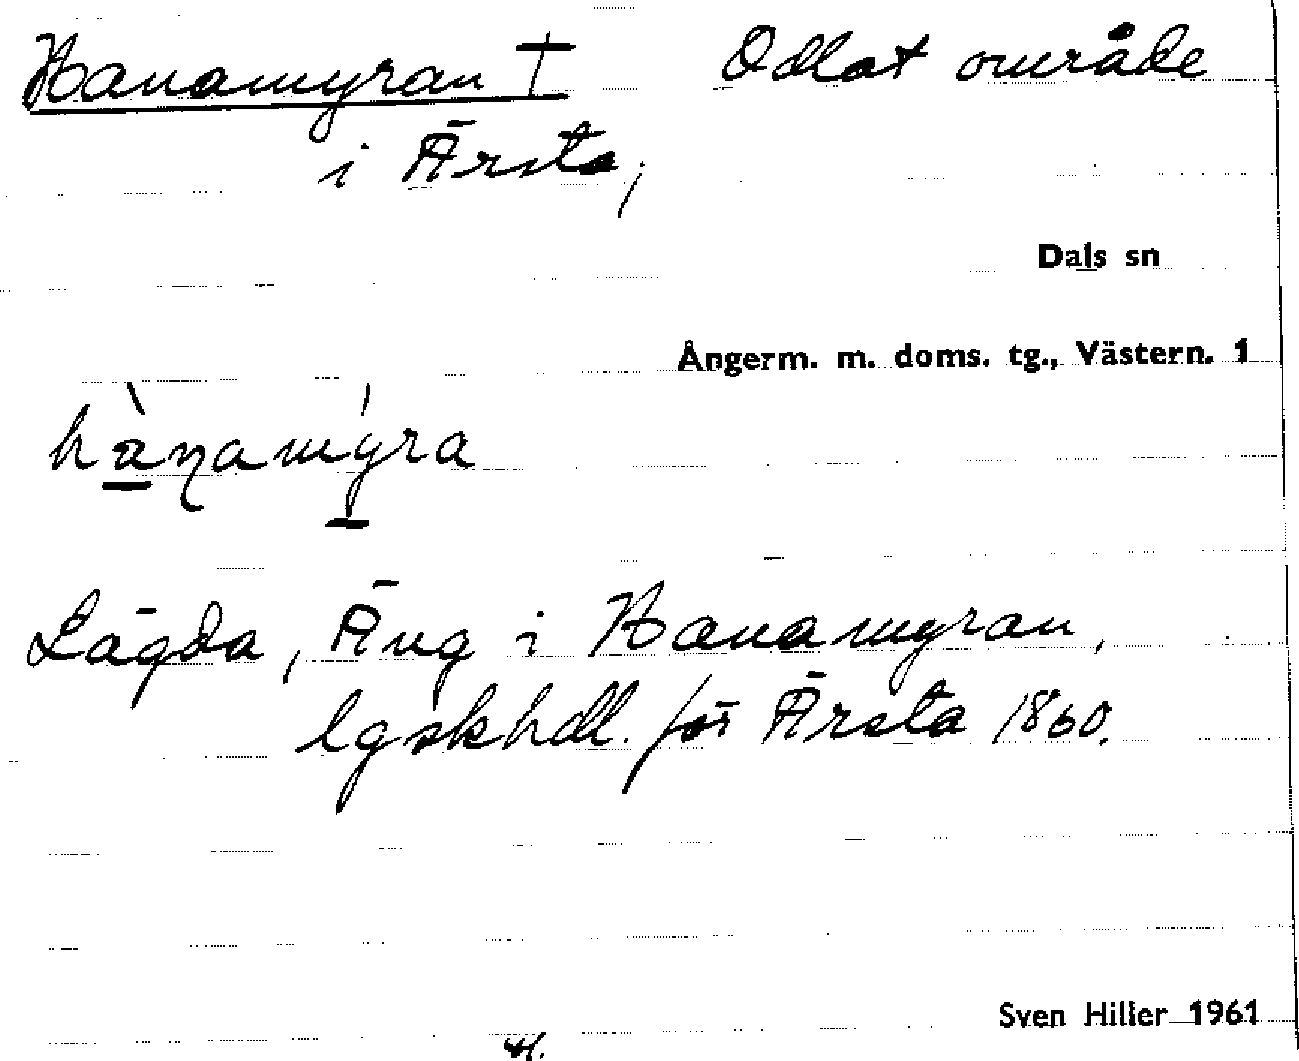 Hanamyran † Odlat område
i Ärsta,
Dals sn
Ångerm. m. doms. tg., Västern. 1
hànamýra
Lägda, Äng i Hanamyran,
lgskhdl. för Ärsta 1860.
Sven Hiller 1961